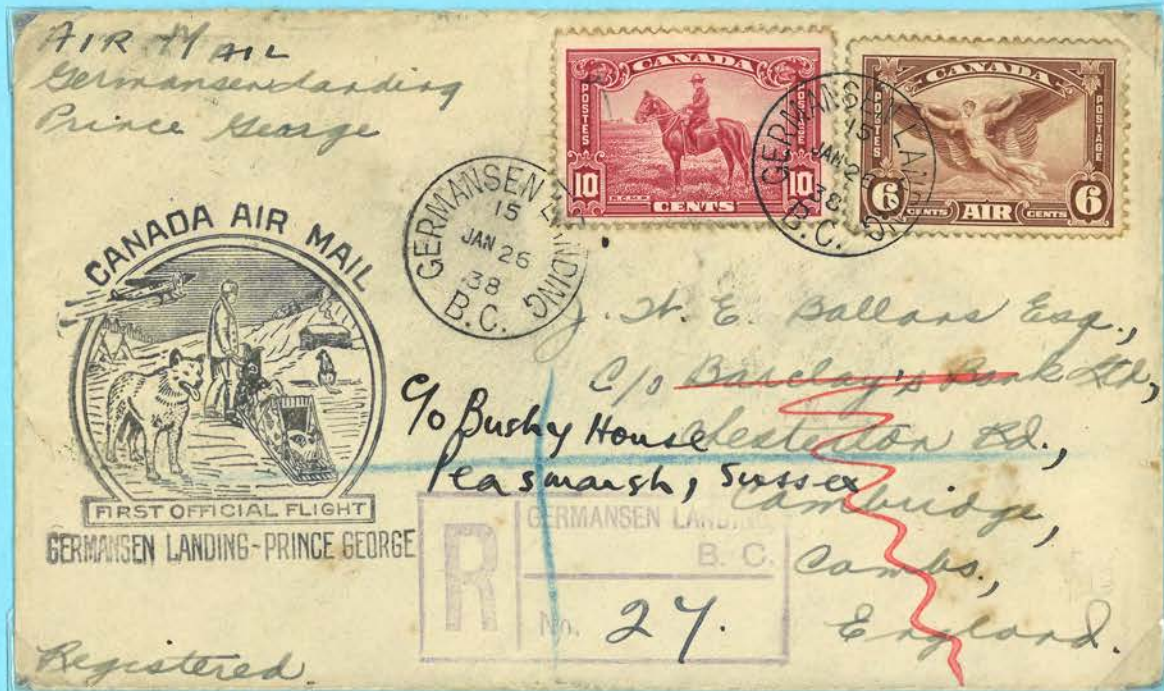 AIR MAIL
Germansen Landing
Prince George
CANADA
POSTES
POSTAGE
10 CENTS 10
R.C.M.P.
CANADA
POSTES
POSTAGE
6 CENTS AIR CENTS 6
GERMANSEN LANDING
15
JAN 26
38
B.C.
GERMANSEN LANDING
15
JAN 26
38
B.C.
CANADA AIR MAIL
FIRST OFFICIAL FLIGHT
GERMANSEN LANDING-PRINCE GEORGE
J. W. E. Ballans Esq.,
C/o Barclay's Bank Ltd,
Chesterton Rd.,
Cambridge,
Cambs,
England.
C/o Bushy House
Peasmarsh, Sussex
R
GERMANSEN LANDING,
B. C.
No. 27.
Registered